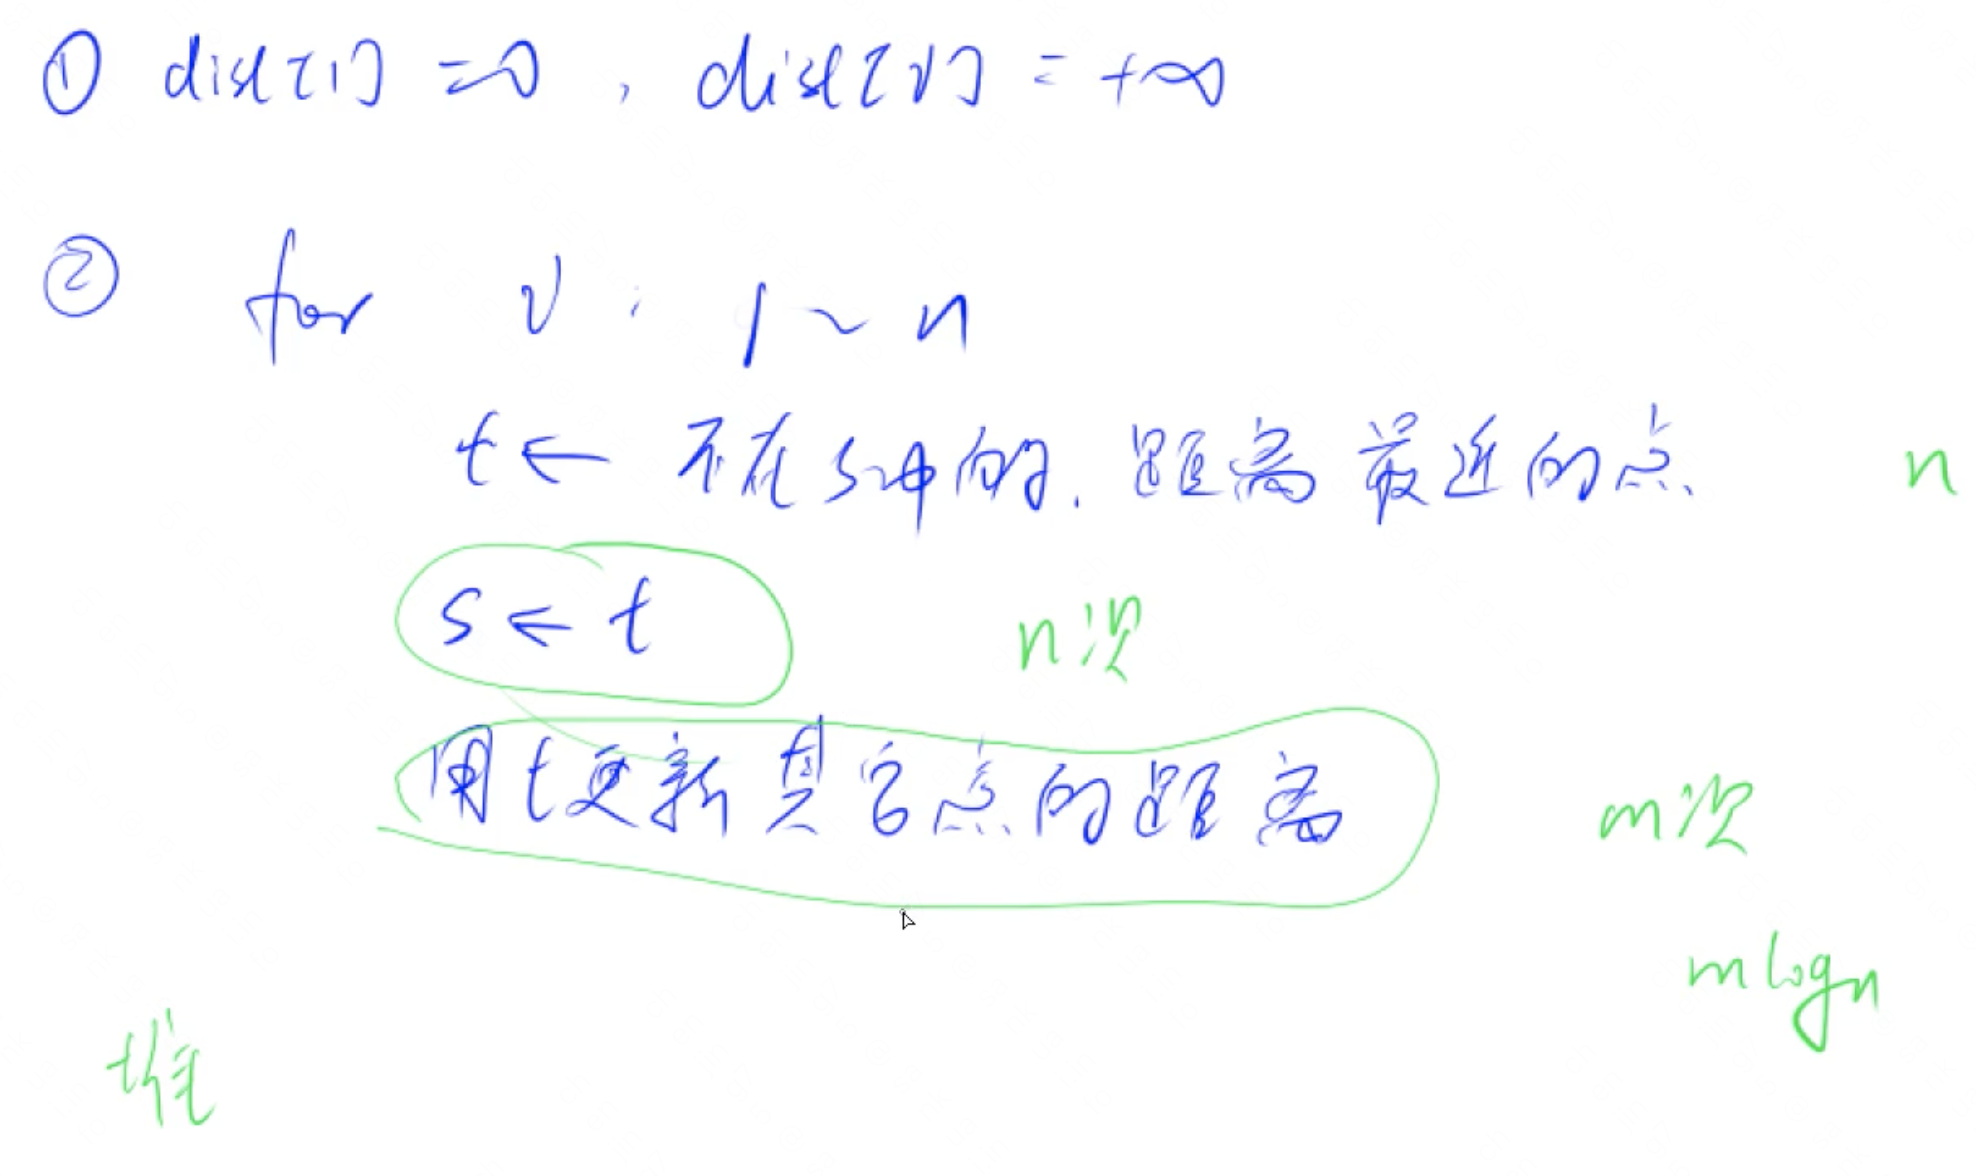 ① dist[1] = 0, dist[v] = +∞
② for v : 1 ~ n
t ← 不在s中的, 距离最近的点 n
s ← t n次
用t更新其它点的距离 m次
mlogn
堆